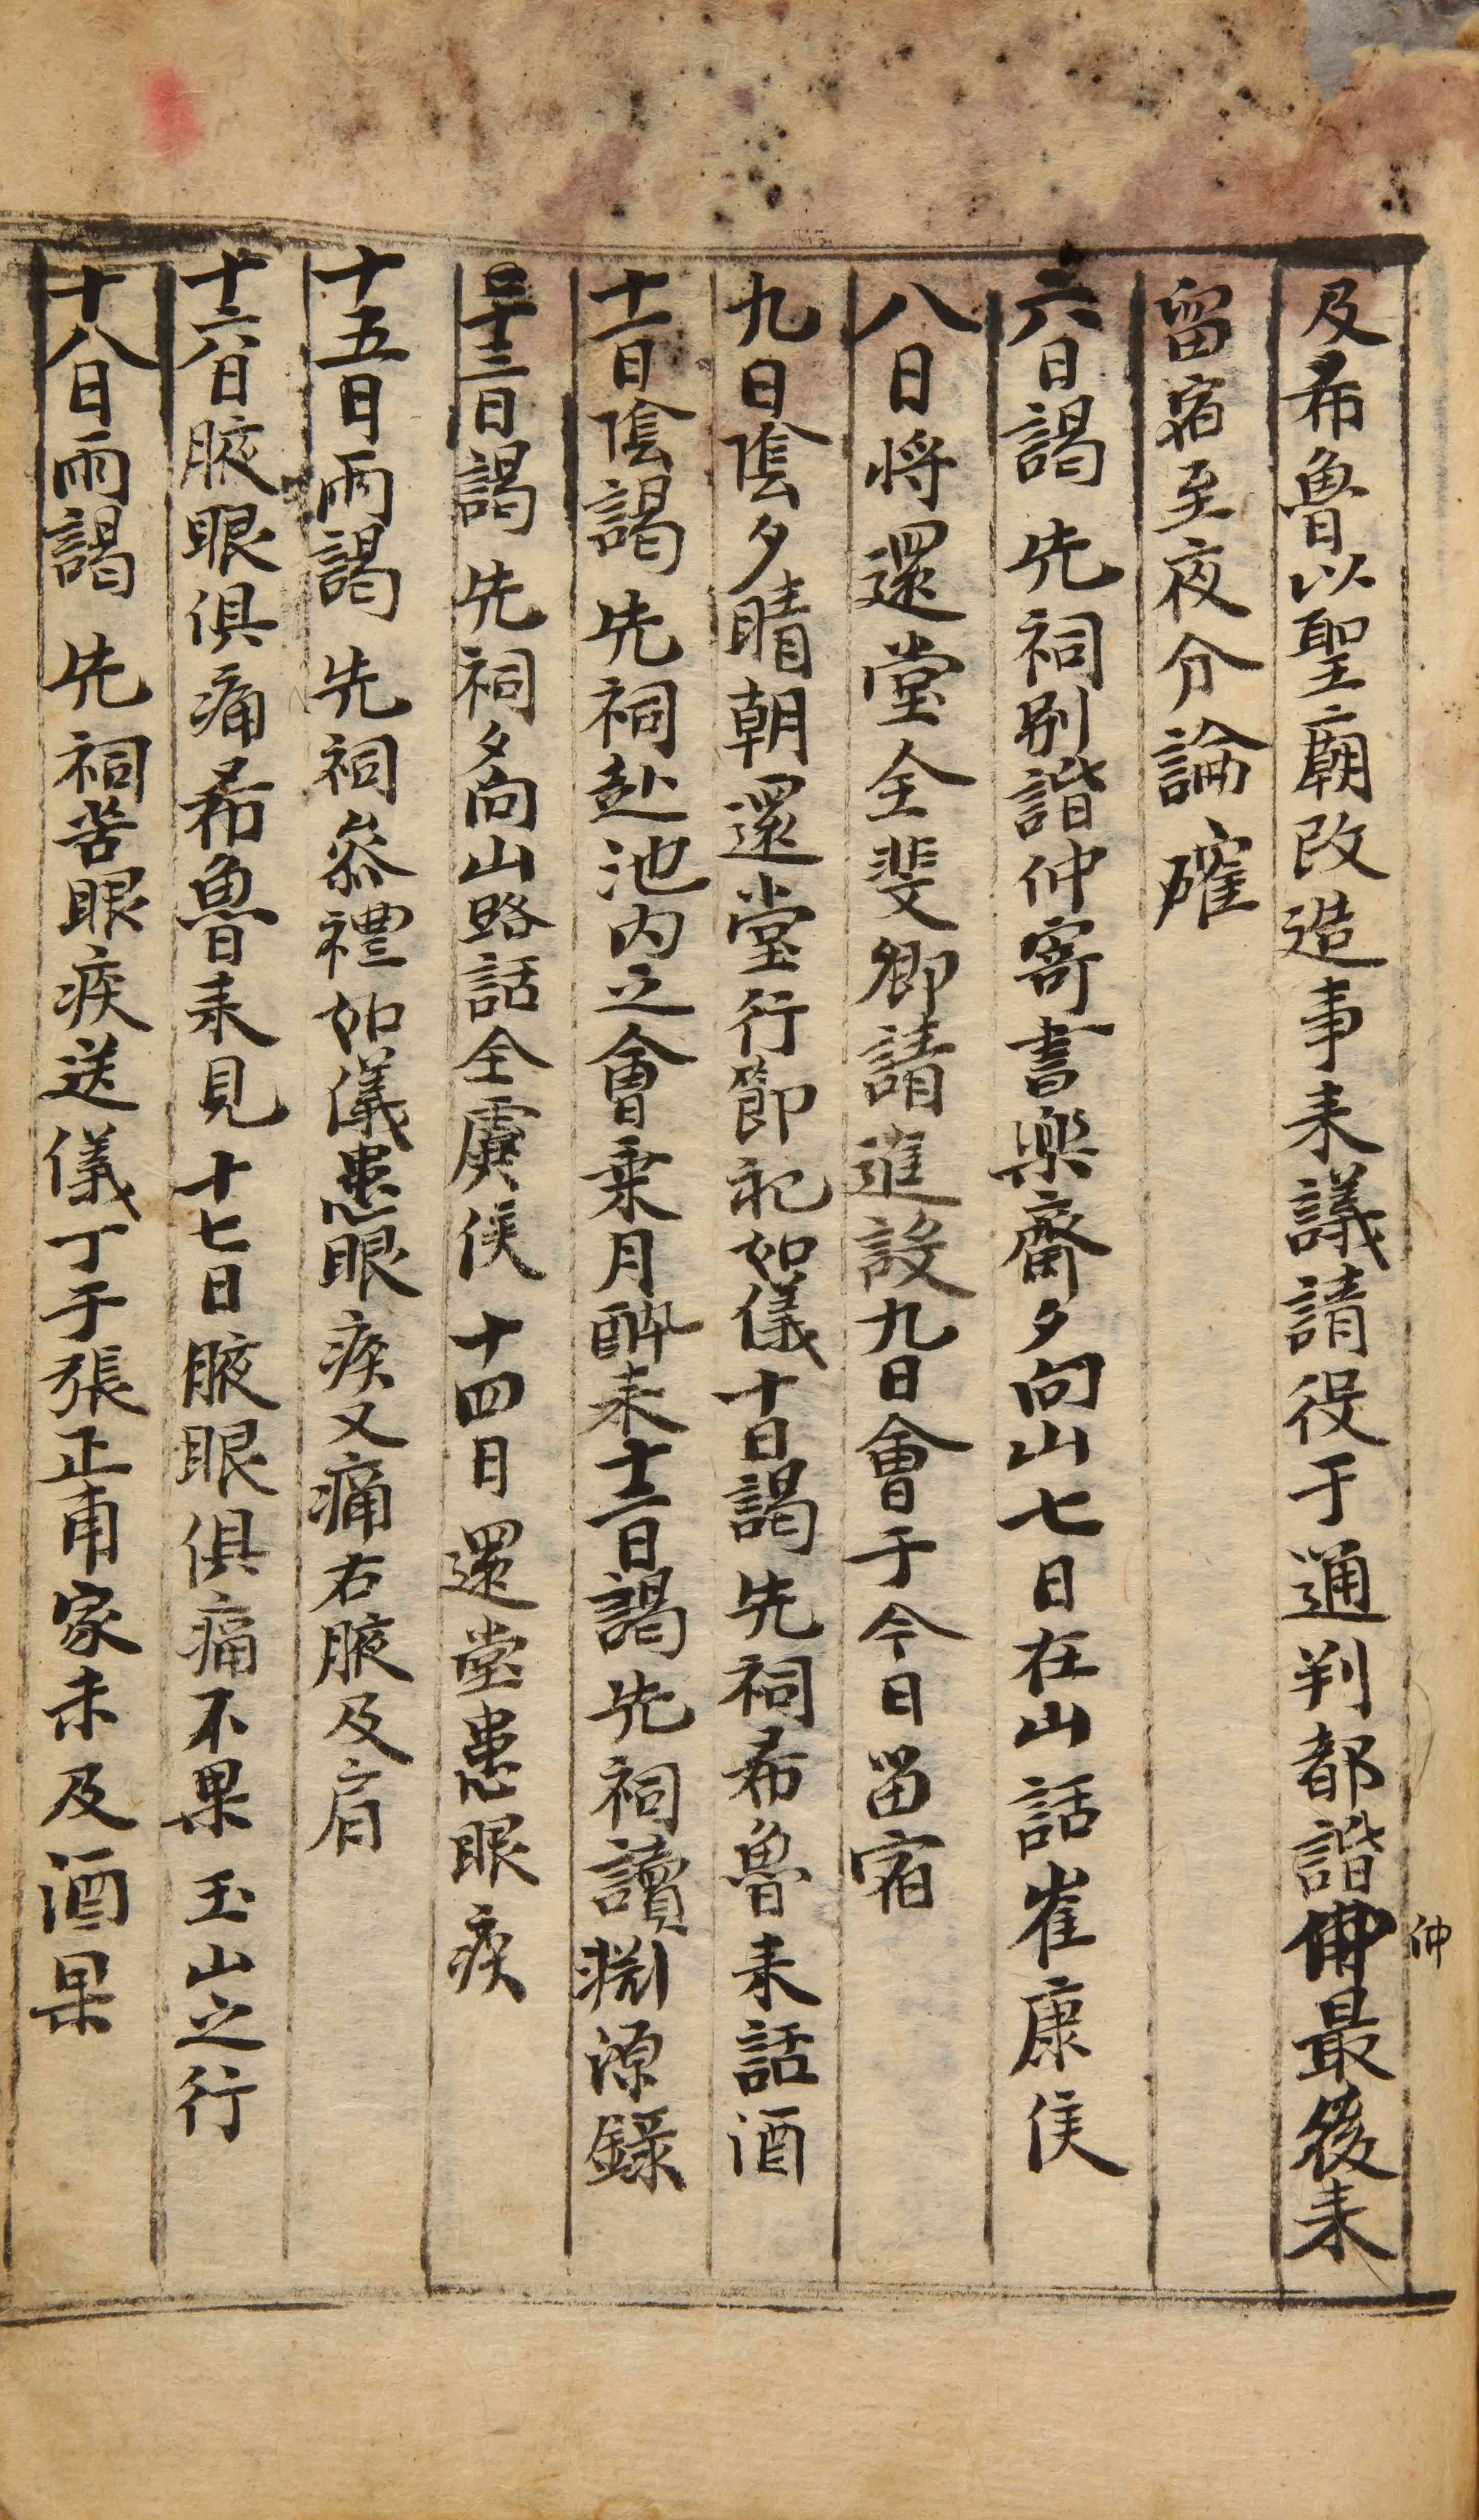 及希魯以聖廟改造事来議請役于通判都諧仲最後来
仲
留宿至夜分論確
六日謁 先祠別諧仲寄書樂齋夕向山七日在山話崔康侯
八日将還堂全斐卿請進設九日會于今日留宿
九日陰夕晴朝還堂行節祀如儀十日謁先祠希魯来話酒
十一日陰謁 先祠赴池内之會乗月酔来十二日謁先祠讀渊源錄
十三日謁 先祠夕向山路話全慶侯 十四日還堂患眼疾
十五日雨謁 先祠叅禮如儀患眼疾又痛右腋及肩
十六日腋眼俱痛希魯来見 十七日腋眼俱痛不果玉山之行
十八日雨謁 先祠苦眼疾送儀丁于張正甫家未及酒果